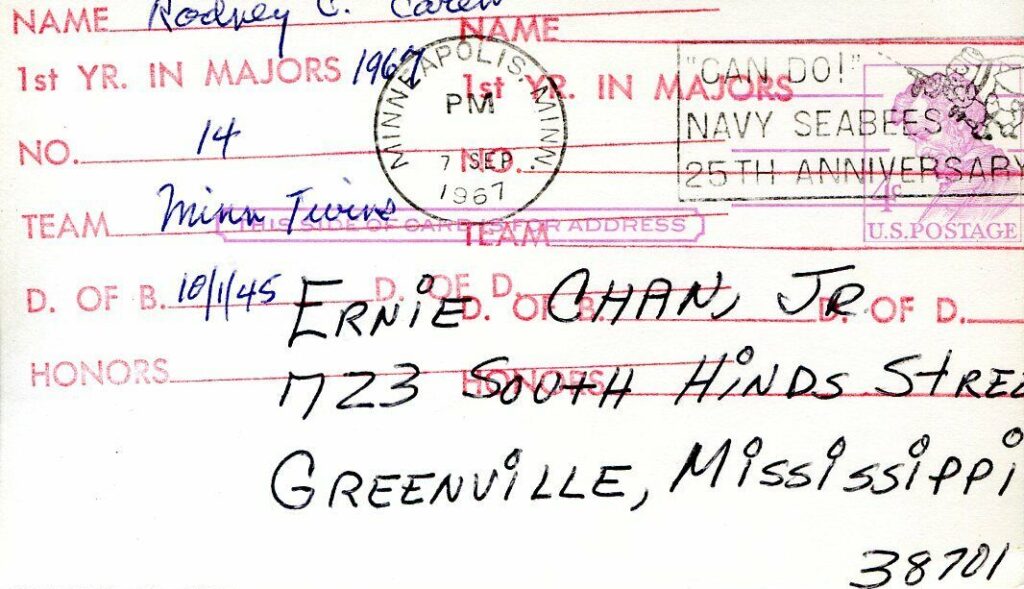 NAME Rodney C. Carew NAME
1st YR. IN MAJORS 1967 1st YR. IN MAJORS
NO. 14 NO.
TEAM Minn Twins TEAM
D. OF B. 10/1/45 D. OF D. D. OF B. D. OF D.
HONORS HONORS
MINNEAPOLIS, MINN.
PM
7 SEP
1967
"CAN DO!"
NAVY SEABEES
25TH ANNIVERSARY
4c
U.S. POSTAGE
THIS SIDE OF CARD IS FOR ADDRESS
ERNIE CHAN, JR
1723 SOUTH HINDS STREE
GREENVILLE, MISSISSIPPI
38701